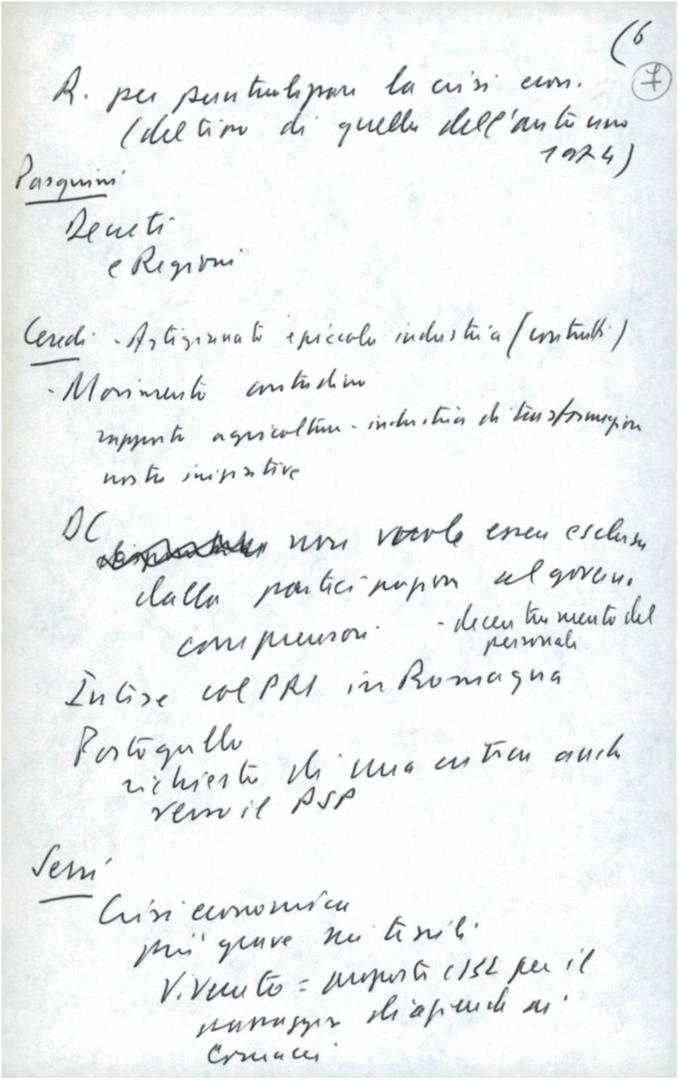 (6
7
R. per puntualizzare la crisi econ.
(del tipo di quella dell'autunno
1974)
Pasquini
Decreti
e Regioni
Ceredi - Artigianato e piccola industria (contratti)
- Movimento contadino
rapporto agricoltura - industria di trasformazione
nostre iniziative
DC
non vuole essere esclusa
dalla partecipazione al governo
comprensori - decentramento del
personale
Intese col PRI in Romagna
Portogallo
richiesta di una critica anche
verso il PSP
Serri
Crisi economica
più grave nei tessili
V. Veneto = proposta CISL per il
passaggio di aziende ai